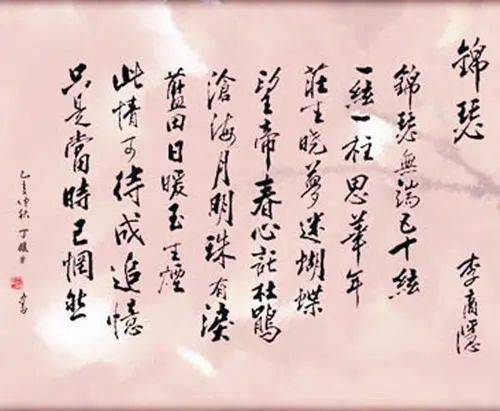 錦瑟
李商隱
錦瑟無端五十絃
一絃一柱思華年
莊生晓夢迷蝴蝶
望帝春心託杜鵑
滄海月明珠有淚
藍田日暖玉生煙
此情可待成追憶
只是當時已惘然
乙亥仲秋 丁
書